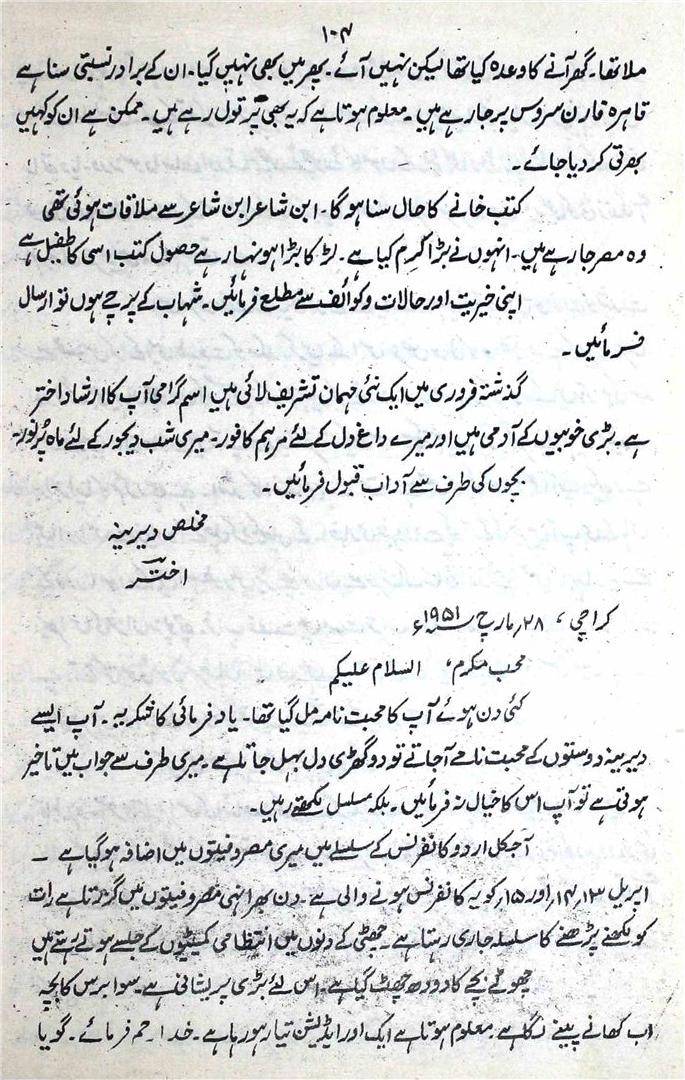 ۱۰۴
ملا تھا۔ گھر آنے کا وعدہ کیا تھا لیکن نہیں آئے۔ پھر میں بھی نہیں گیا۔ ان کے برادر نسبتی سنا ہے
قاہرہ فارن سروس پر جا رہے ہیں۔ معلوم ہوتا ہے کہ یہ بھی پَر تول رہے ہیں۔ ممکن ہے ان کو کہیں
بھرتی کر دیا جائے۔
کتب خانے کا حال سنا ہو گا۔ ابن شاعر ابن شاعر سے ملاقات ہوئی تھی
وہ مصر جا رہے ہیں۔ انہوں نے بڑا کرم کیا ہے۔ لڑکا بڑا ہونہار ہے حصول کتب اسی کا طفیل ہے
اپنی خیریت اور حالات و کوائف سے مطلع فرمائیں۔ شہاب کے پرچے ہوں تو ارسال
فرمائیں۔
گذشتہ فروری میں ایک نئی مہمان تشریف لائی ہیں اسم گرامی آپ کا ارشاد اختر
ہے۔ بڑی خوبیوں کے آدمی ہیں اور میرے داغ دل کے لئے مرہم کافور۔ میری شب دیجور کے لئے ماہ پُر نور۔
بچوں کی طرف سے آداب قبول فرمائیں۔
مخلص دیرینہ
اختر
کراچی، ۲۸؍ مارچ ۱۹۵۱ء
محب مکرم، السلام علیکم
کئی دن ہوئے آپ کا محبت نامہ مل گیا تھا۔ یاد فرمائی کا شکریہ۔ آپ ایسے
دیرینہ دوستوں کے محبت نامے آ جاتے تو دو گھڑی دل بہل جاتا ہے۔ میری طرف سے جواب میں تاخیر
ہوتی ہے تو آپ اس کا خیال نہ فرمائیں۔ بلکہ مسلسل لکھتے رہیں۔
آجکل اردو کانفرنس کے سلسلے میں میری مصروفیتوں میں اضافہ ہو گیا ہے۔
اپریل ۱۳، ۱۴، اور ۱۵، کو یہ کانفرنس ہونے والی ہے۔ دن بھر انہی مصروفیتوں میں گزرتا ہے رات
کو لکھنے پڑھنے کا سلسلہ جاری رہتا ہے۔ چھٹی کے دنوں میں انتظامی کمیٹیوں کے جلسے ہوتے رہتے ہیں
چھوٹے بچے کا دودھ چھٹ گیا ہے۔ اس لئے بڑی پریشانی ہے۔ سوا برس کا بچہ
اب کھانے پینے لگا ہے۔ معلوم ہوتا ہے ایک اور ایڈیشن تیار ہو رہا ہے۔ خدا رحم فرمائے۔ گویا